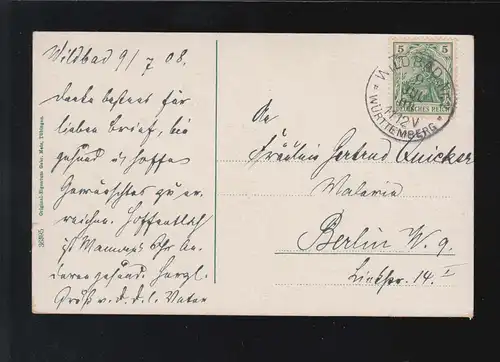 Wildbad 9/7 08.
Danke bestens für
lieben Brief, bin
gesund u hoffe
Gewünschtes zu er-
reichen. Hoffentlich
ist Mamas Ohr
gesund. Herzl.
Gruß v. d. d. l. Vater
36895 Original-Eigentum Gebr. Metz, Tübingen.
5 5
DEUTSCHES REICH
WILDBAD
11-12 V
* WÜRTTEMBERG *
An
Fräulein Gertrud Quicker
Malerin
Berlin W. 9.
Linkstr. 14. I